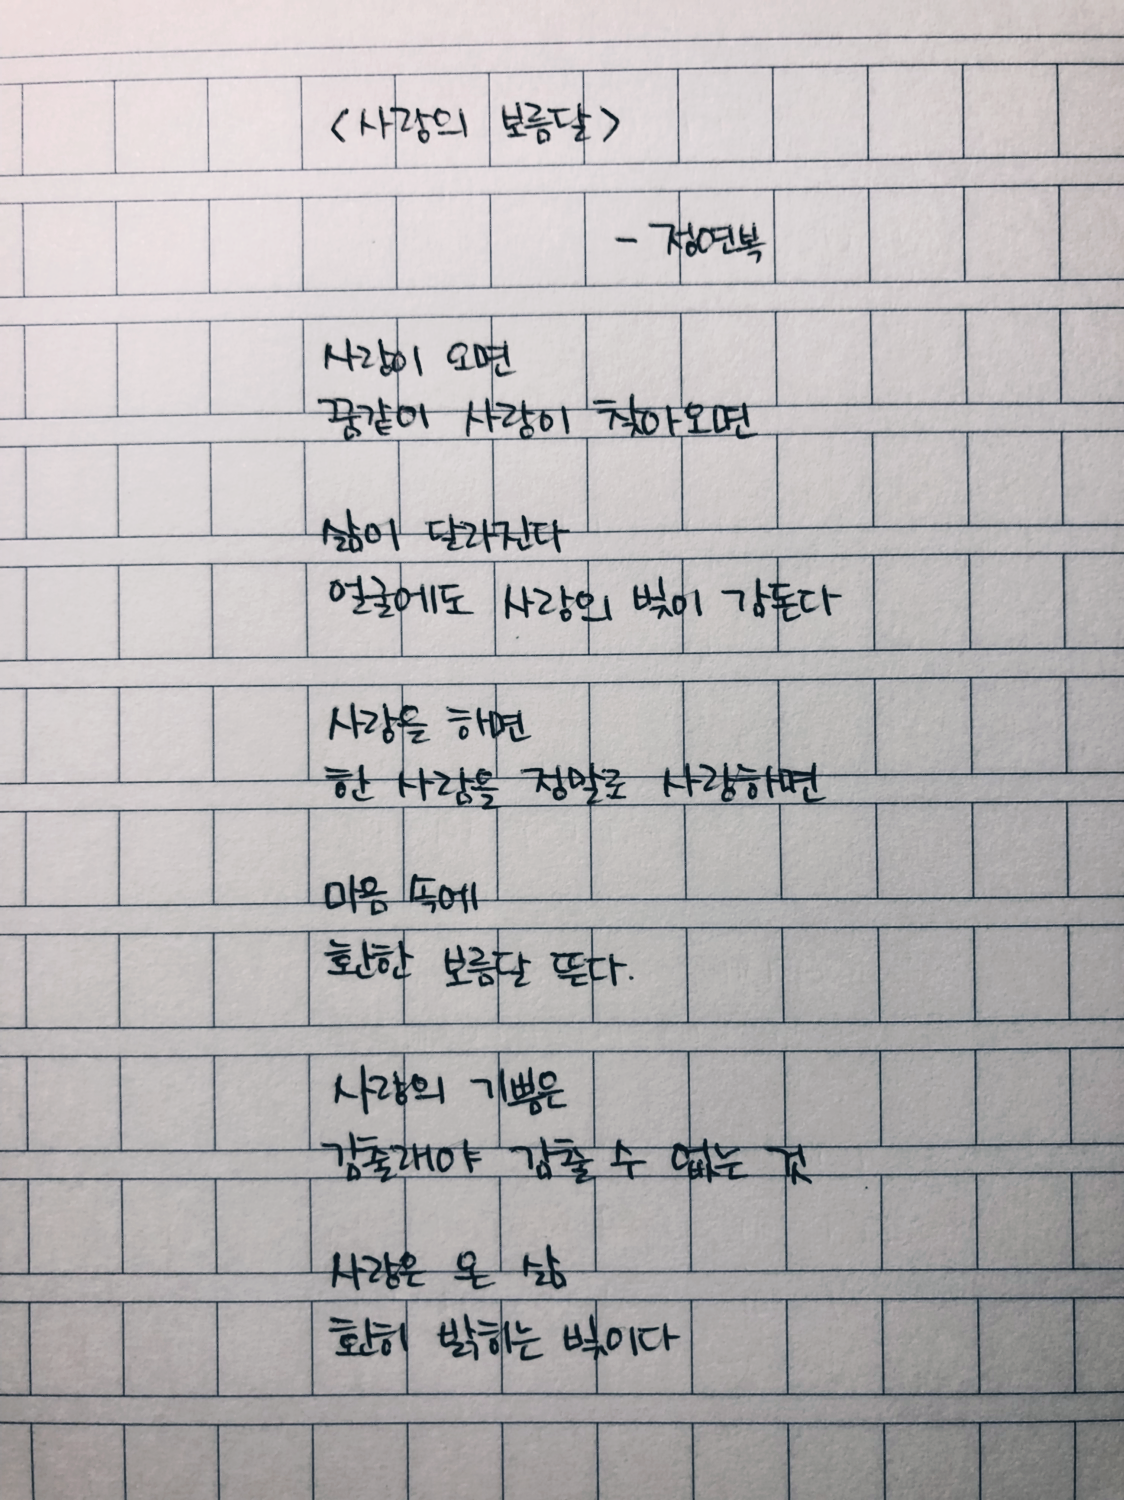 <사랑의 보름달>
- 정연복
사랑이 오면
꿈같이 사랑이 찾아오면
삶이 달라진다
얼굴에도 사랑의 빛이 감돈다
사랑을 하면
한 사람을 정말로 사랑하면
마음 속에
환한 보름달 뜬다.
사랑의 기쁨은
감출래야 감출 수 없는 것
사랑은 온 삶
환히 밝히는 빛이다